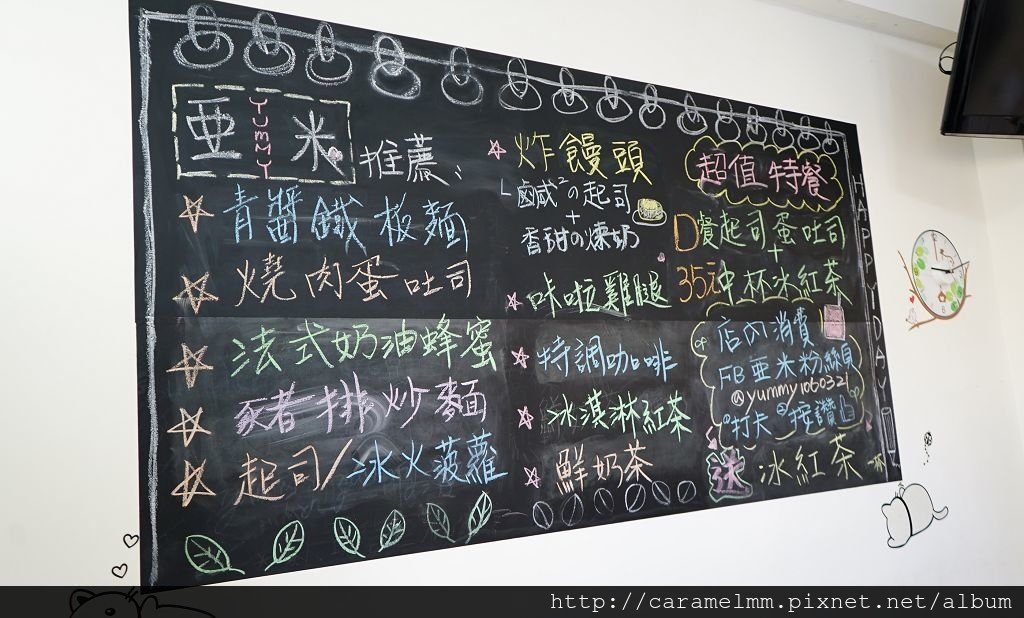 亜 Yummy 米 推薦:
青醬鐵板麵
燒肉蛋吐司
法式奶油蜂蜜
豬排炒麵
起司/冰火菠蘿
炸饅頭
鹹鹹の起司
+
香甜の煉奶
味啦雞腿
特調咖啡
冰淇淋紅茶
鮮奶茶
超值特餐
D餐起司蛋吐司
+
35元中杯冰紅茶
店內消費
FB亜米粉絲頁
@yummy1060321
①打卡 ②按讚
送冰紅茶一杯
HAPPY DAY
http://caramelmm.pixnet.net/album